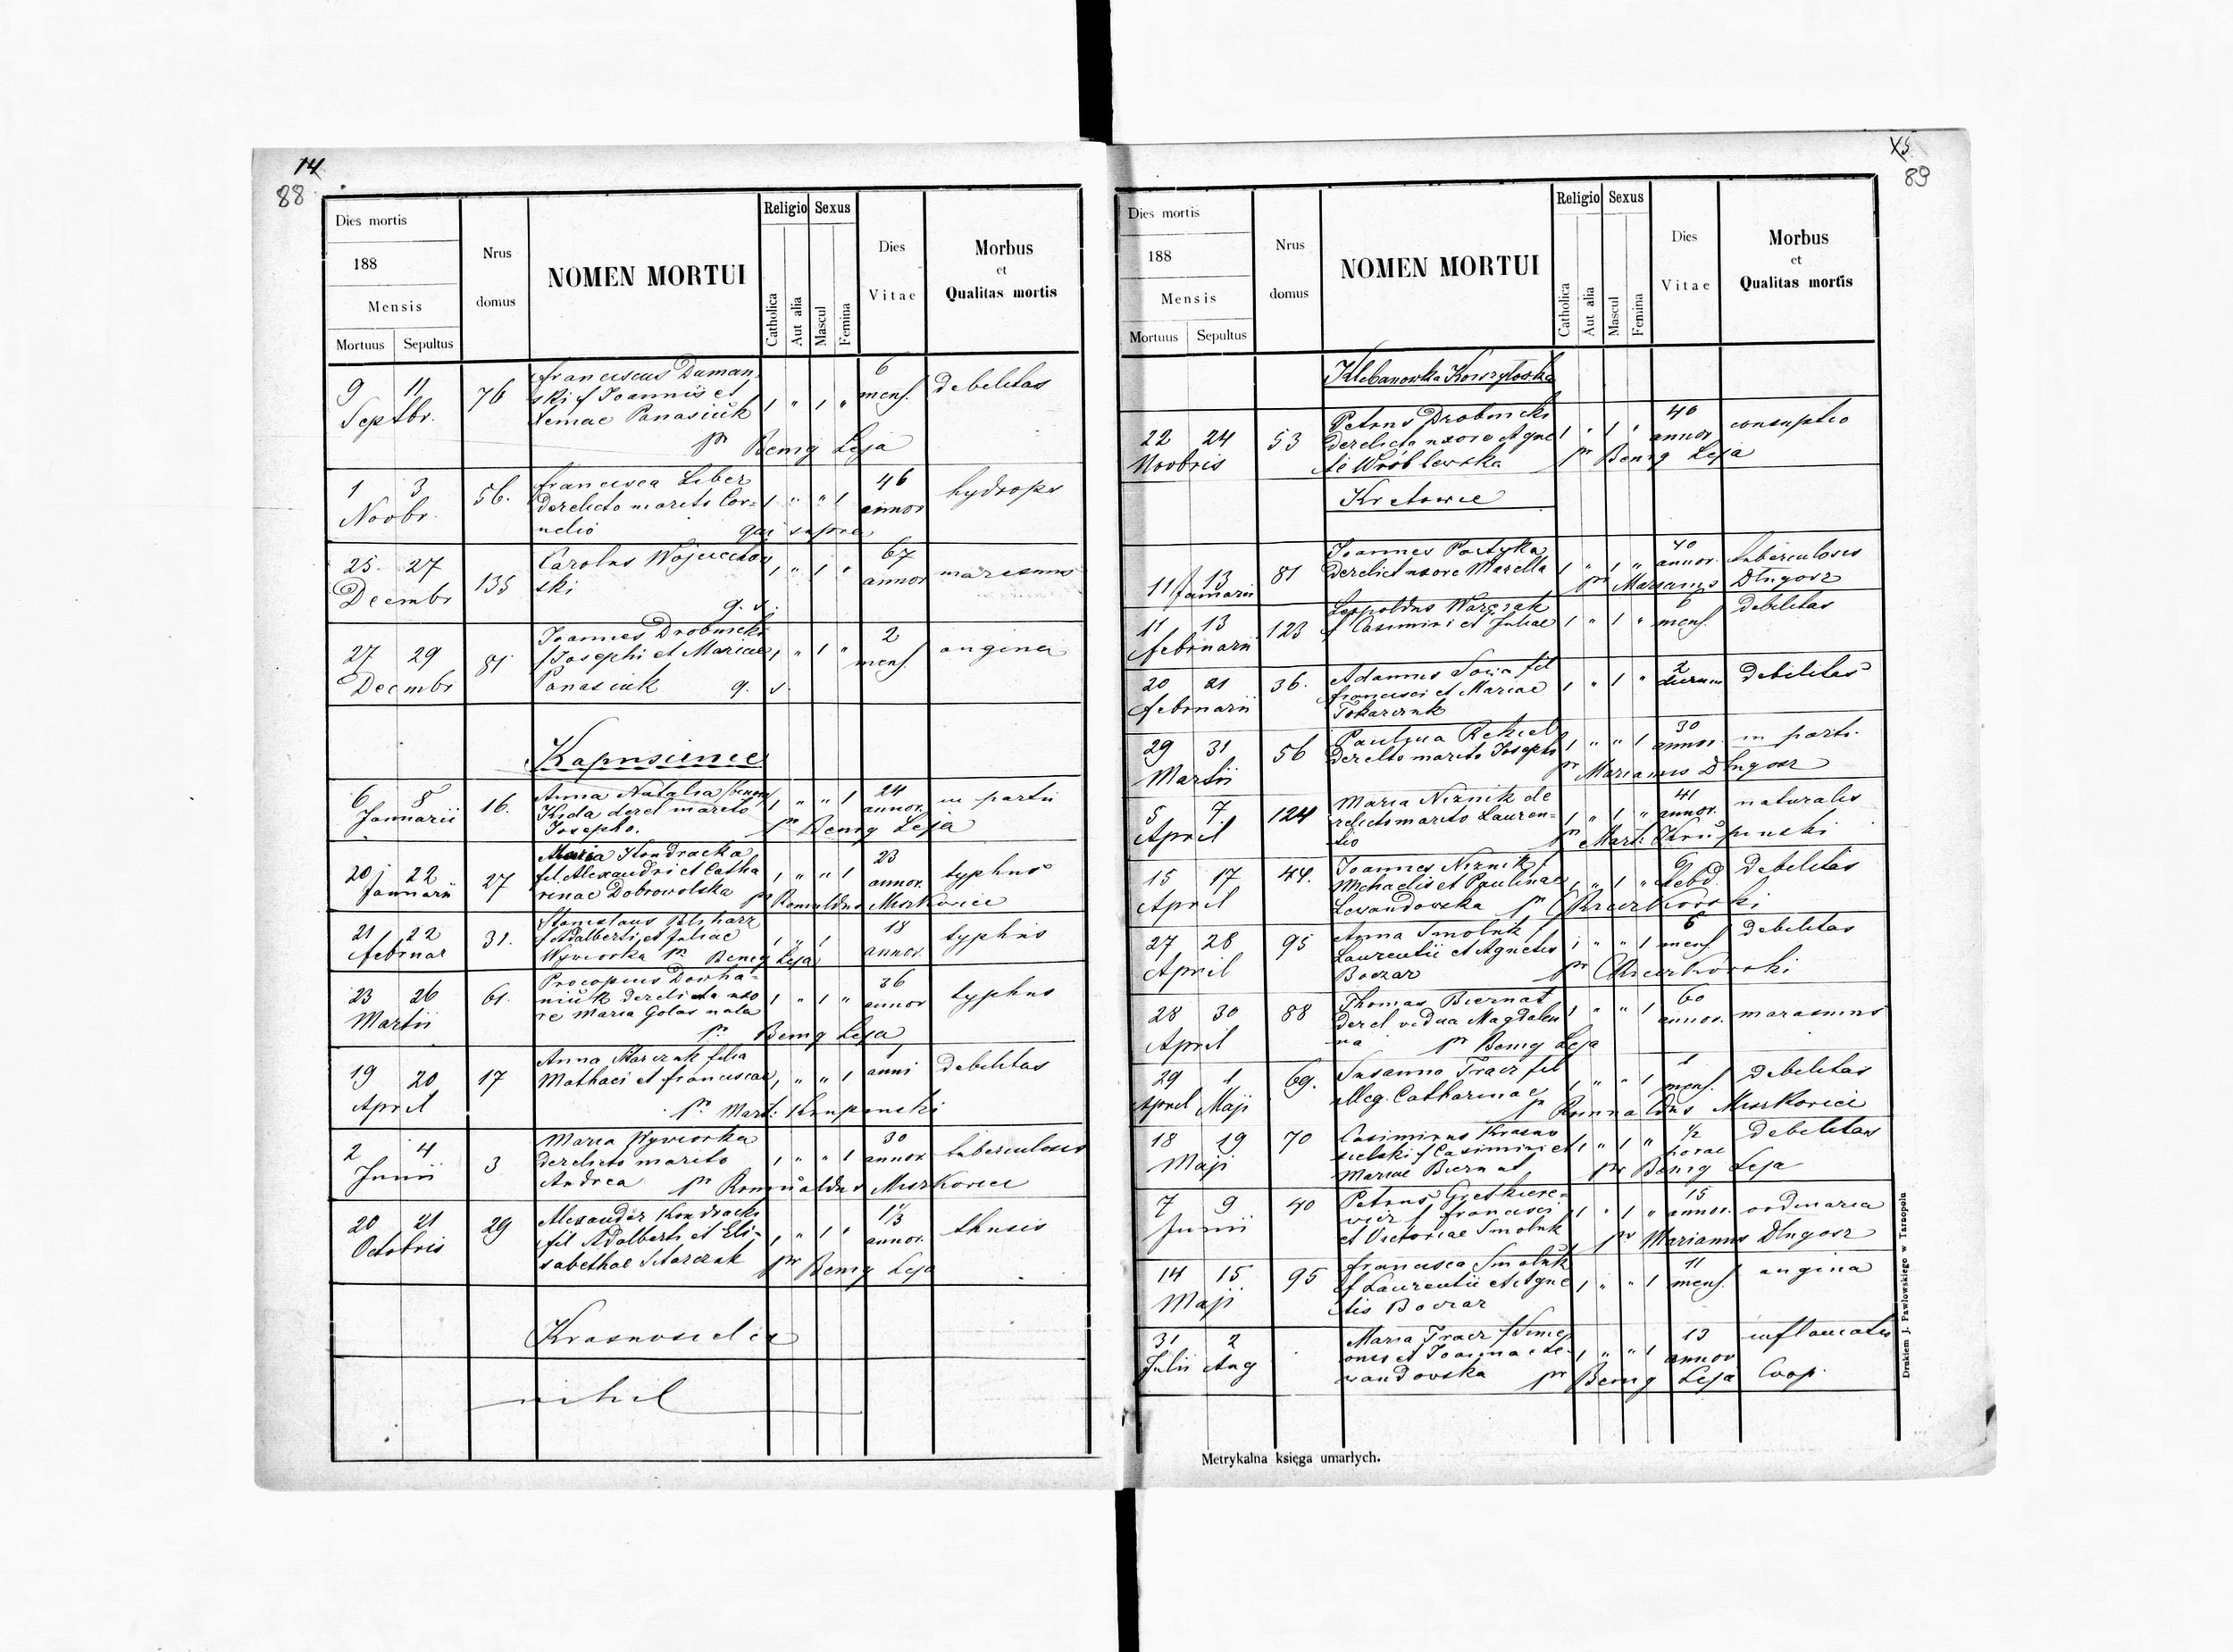 14
88
Dies mortis
188
Mensis
Mortuus Sepultus
Nrus
domus
NOMEN MORTUI
Religio Sexus
Catholica
Aut alia
Mascul
Femina
Dies
Vitae
Morbus
et
Qualitas mortis
9 11 76 Franciscus Duman- 6 mens. debilitas
Septbr. ski f Joannis et
Xemae Panasiuk 1 " 1 "
pr Benig Leja
1 3 56. Francisca Liber 46 hydrops
Novbr. derelicto marito Cor= 1 " " 1 annor
nelio qui supra
25. 27 135 Carolus Wojciechow 67
Decembr ski 1 " 1 " annor
q. s.
27 29 81 Joannes Drobnicki 2 angina
Decembr f Josephi et Mariae 1 " 1 " mens
Panasiuk q. s.
Kapuscince
6 8 16. Anna Natalia 24 in partu
Januarii Kida derel marito 1 " " 1 annor.
Josepho. pr Benig Leja
20 22 27 Maria Kondracka 23 typhus
Januarii fil Alexandri et Catha 1 " " 1 annor.
rinae Dobrowolska pr Romualdus Muszkowicz
21 22 31. Stanislaus 18 typhus
Februar f Adalberti et Juliae 1 " 1 annor.
Wywiorka pr Benig Leja
23 26 61. Procopius Dowha- 36 typhus
Martii niuk derelicta uxo 1 " 1 " annor
re Maria Golas nata
pr Benig Leja
19 20 17 Anna Starczuk filia 1 debilitas
April Mathaei et Franciscae 1 " " 1 anni
pr. Mart: Krupinski
2 4 3 Maria Wywiorka 30 tuberculosis
Junii derelicto marito 1 " " 1 annor
Andrea pr Romualdus Muszkowicz
20 21 29 Alexander Kondracki 1 1/3
Octobris fil Adalberti et Eli- 1 " 1 " annor.
sabethae Starczuk pr Benig Leja
Krasnosielce
nihil
15
89
Dies mortis
188
Mensis
Mortuus Sepultus
Nrus
domus
NOMEN MORTUI
Religio Sexus
Catholica
Aut alia
Mascul
Femina
Dies
Vitae
Morbus
et
Qualitas mortis
Klebanowka Koszylowka
22 24 53 Petrus Drobnicki 40 consuptio
Novbris derelicta uxore Agne 1 " 1 " annor
te Wróblewska pr Benig Leja
Kretowce
11 13 81 Joannes Partyka 40 tuberculosis
Januarii derelict uxore Marella 1 " 1 " annor.
pr Marianus Dlugosz
11 13 123 Leopoldus Warczak 6 debilitas
Februarii f Casimiri et Juliae 1 " 1 " mens.
20 21 36. Adamus Socija fil 2 debilitas
Februarii Francisci et Mariae 1 " 1 " dierum
Tokarczuk
29 31 56 Paulina Rekiel 30 in partu
Martii derelto marito Josepho 1 " " 1 annor.
pr Marianus Dlugosz
5 7. 124 Maria Niznik de 41 naturalis
April relicto marito Lauren= 1 " 1 " annor.
tio pr Mart. Krupinski
15 17 44. Joannes Niznik f debilitas
April Michaelis et Paulinae 1 " 1 " hebd.
Lewandowska pr
27 28 95 Anna Smolnik f 6 debilitas
April Laurentii et Agnetis 1 " " 1 mens.
Boczar pr
28 30 88 Thomas Biernat 60 marasmus
April derel vidua Magdale 1 " " 1 annor.
na pr Benig Leja
29 1 69. Susanna Tracz fil 1 debilitas
April Maji illeg. Catharinae 1 " " 1 mens.
pr Romualdus Muszkowicz
18 19 70 Casimirus Krasno 1/2 debilitas
Maji sielski f Casimiri et 1 " 1 " horae
Mariae Biernat pr Benig Leja
7 9 40 Petrus Gretkiere- 15 ordinaria
Junii wicz f Francisci 1 " 1 " annor.
et Victoriae Smolnik pr Marianus Dlugosz
14 15 95 Francisca Smolnik 11 angina
Maji f Laurentii et Agne 1 " " 1 mens.
tis Boczar
31 2 Maria Tracz f Sime 13
Julii Aug onis et Joanna Le- 1 " " 1 annor
wandowska pr Benig Leja Coop.
Metrykalna księga umarłych.
Drukiem J. Pawłowskiego w Tarnopolu